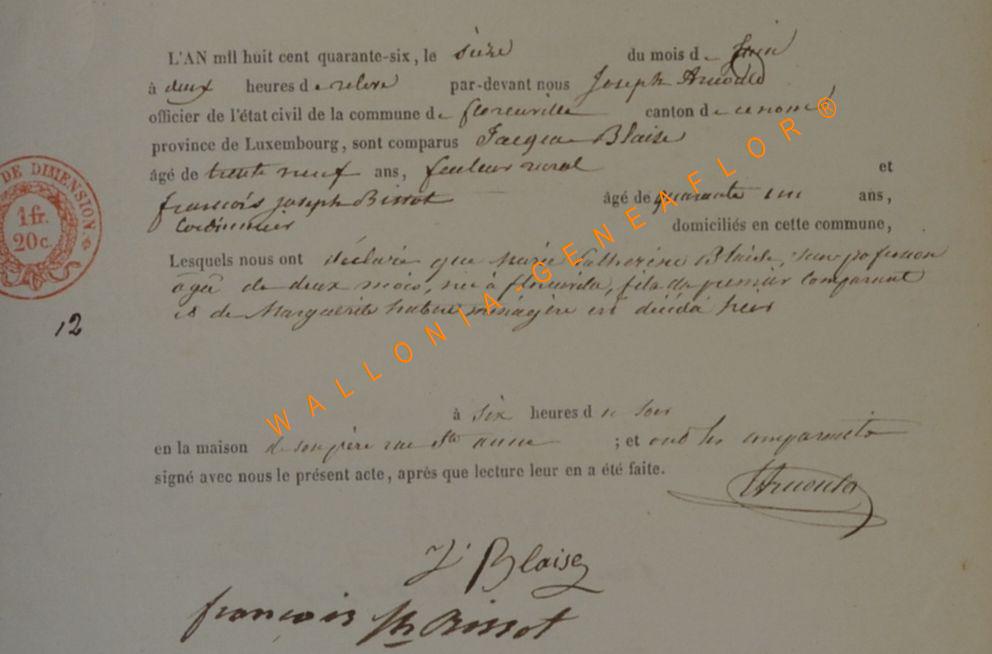 L'AN mil huit cent quarante-six, le seize du mois de Juin
à deux heures de relevé par-devant nous Joseph Arnould
officier de l'état civil de la commune de florenville canton de ce nom
province de Luxembourg, sont comparus Jacques Blaise
âgé de trente neuf ans, facteur rural et
françois joseph Bissot âgé de quarante un ans,
Cordonnier domiciliés en cette commune,
Lesquels nous ont déclaré que Marie Catherine Blaise, sans profession
agée de deux mois, née à florenville, fille du premier comparant
et de Marguerite hubert ménagère est décédée hier
12
à six heures du soir
en la maison de son père rue Ste anne ; et ont les comparants
signé avec nous le présent acte, après que lecture leur en a été faite.
Arnould
J Blaise
françois Jh Bissot
DE DIMENSION
1 fr.
20 c.
WALLONIA-GENEAFLOR®